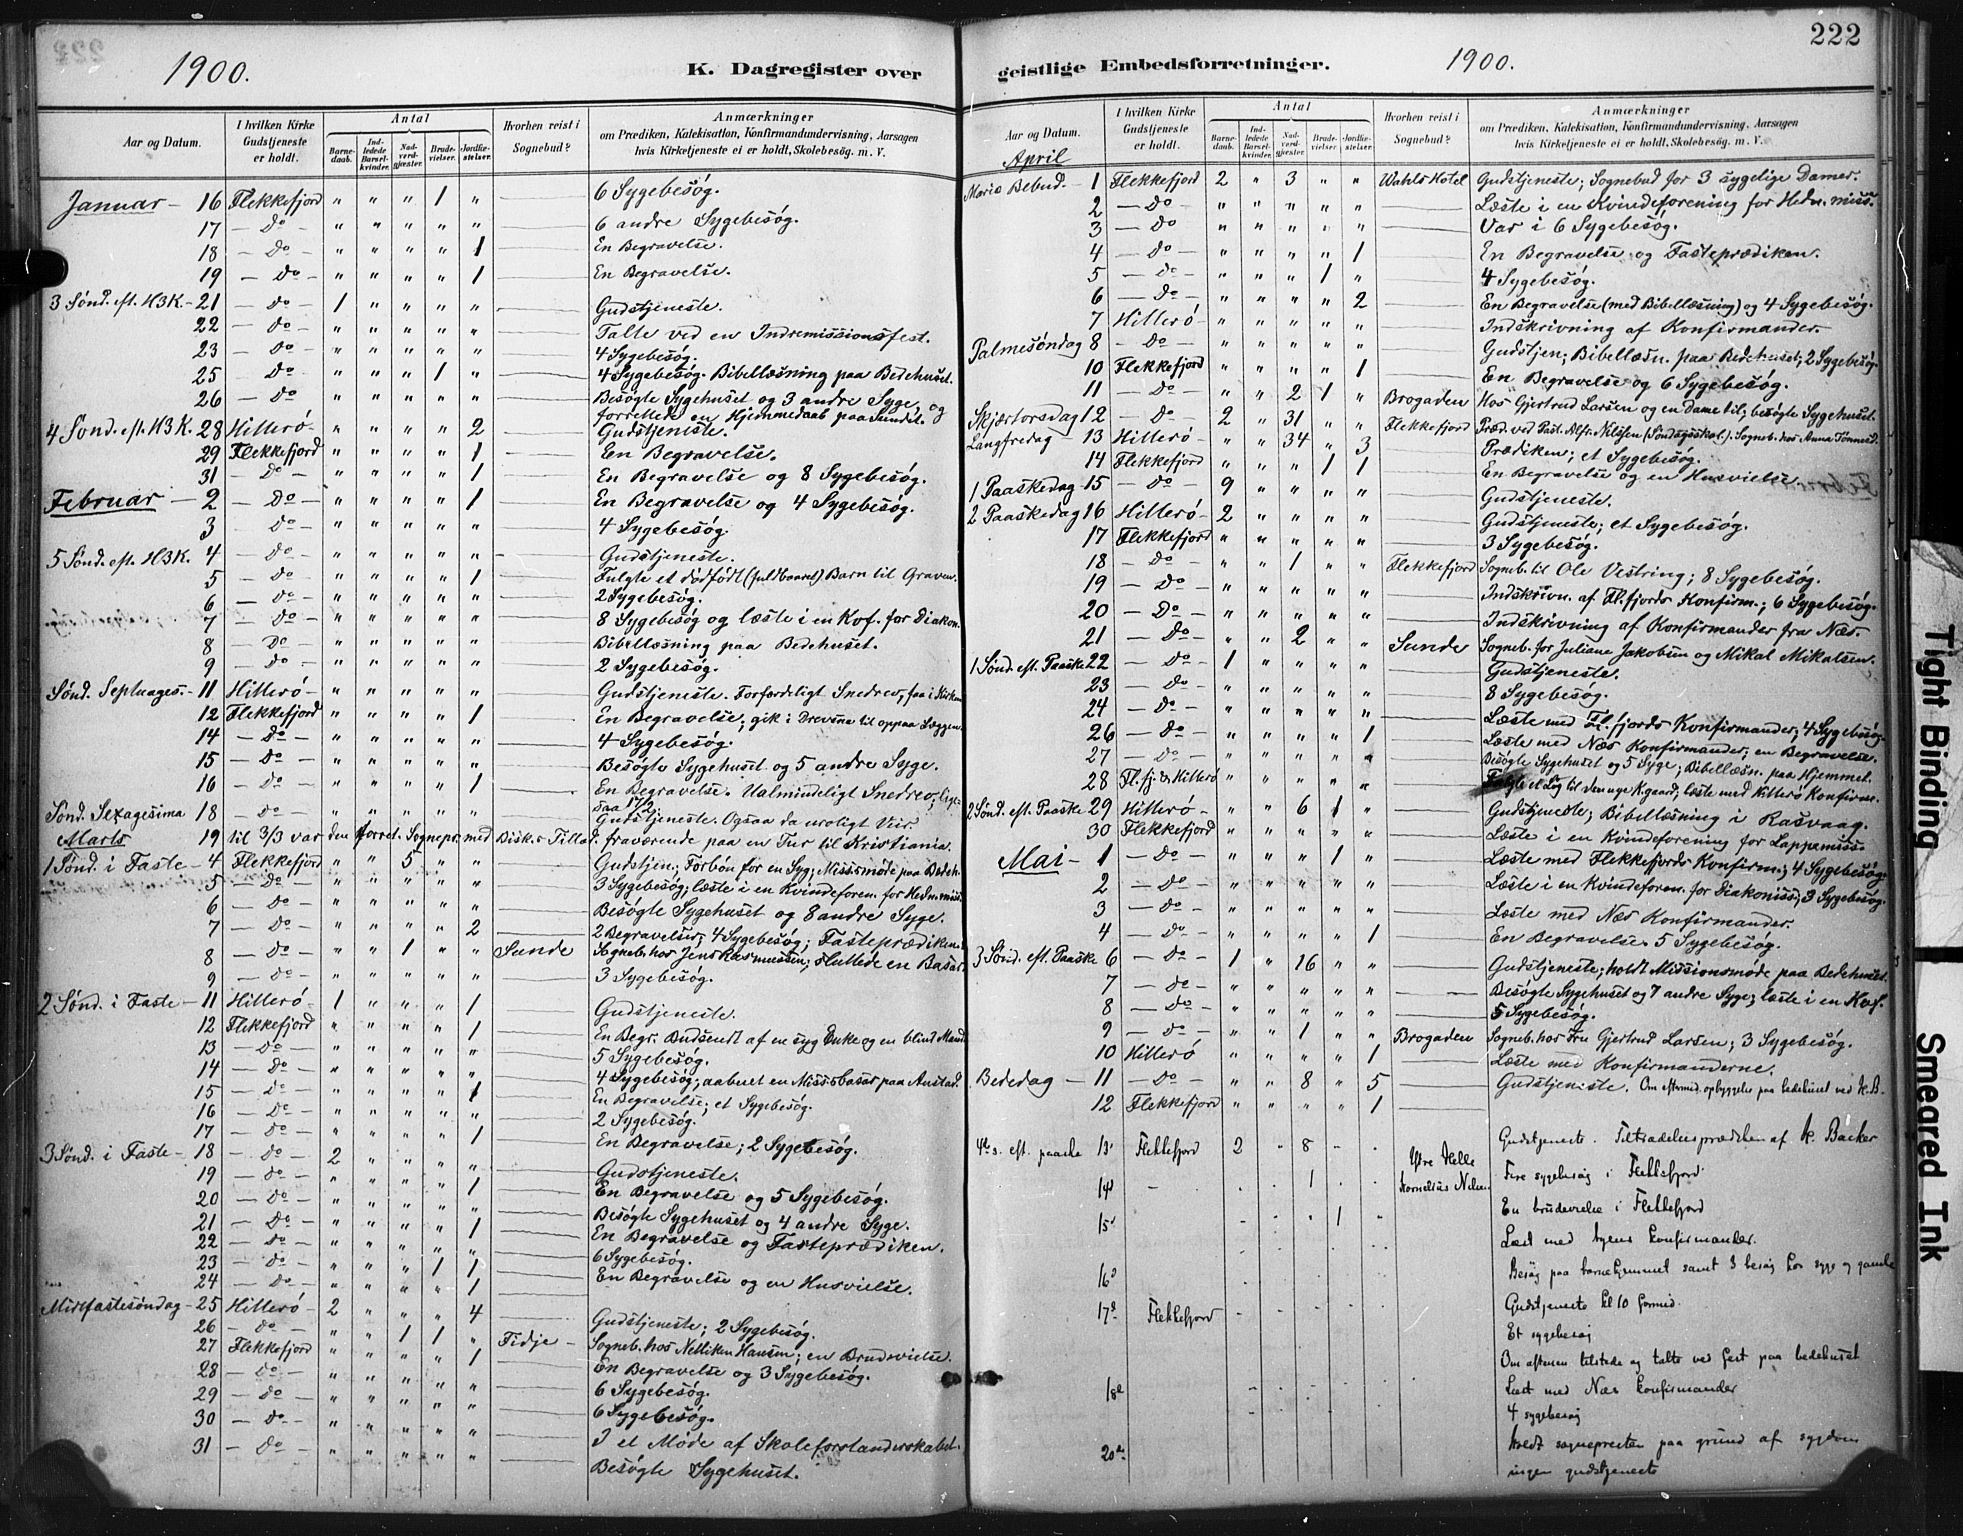 1900.
K. Dagregister over
Aar og Datum. I hvilken Kirke Gudstjeneste er holdt. Antal Barnedaab. Indledede Barselkvinder. Nadverdgjæster. Brudevielser. Jordfæstelser. Hvorhen reist i Sognebud? Anmærkninger om Prædiken, Katekisation, Konfirmandundervisning, Aarsagen hvis Kirketjeneste ei er holdt, Skolebesøg. m. V.
Januar — 16 Flekkefjord " " " 1 " 6 Sygebesøg.
17 — Do — " " " " " 6 andre Sygebesøg.
18 — Do — " " " " 1 En Begravelse.
19 — Do — " " " " 1 En Begravelse.
3 Sønd. eft. H3K — 21 — Do — 1 " " " " Gudstjeneste.
22 — Do — " " " " " Talte ved en Indremissionsfest.
23 — Do — " " " " " 4 Sygebesøg.
25 — Do — " " " 1 " 4 Sygebesøg. Bibellæsning paa Bedehuset.
26 — Do — " " " " " Besøgte Sygehuset og 3 andre Syge, og
forrettede en Hjemmedaab paa Sunde.
4 Sønd. eft. H3K. 28 Hitterø — " " " " 2 Gudstjeneste.
29 Flekkefjord " " " " 1 En Begravelse.
31 — Do — " " " " 1 En Begravelse og 8 Sygebesøg.
Februar — 2 — Do — " " " " 1 En Begravelse og 4 Sygebesøg.
3 — Do — " " " " " 4 Sygebesøg.
5 Sønd. eft. H3K. 4 — Do — " " " " " Gudstjeneste.
5 — Do — " " " " 1 Fulgte et dødfødt (fuldbaaret) Barn til Graven.
6 — Do — " " " " " 2 Sygebesøg.
7 — Do — " " " " " 8 Sygebesøg og læste i en Kvf. for Diakon.
8 — Do — " " " " " Bibellæsning paa Bedehuset.
9 — Do — " " " " " 2 Sygebesøg.
Sønd. Septuages. — 11 Hitterø — " " " " " Gudstjeneste. Forfærdeligt Snedrev, faa i Kirken
12 Flekkefjord " " " " 1 En Begravelse; gik i Drevsne til oppaa Læggen.
14 — Do — " " " " " 4 Sygebesøg.
15 — Do — " " " " " Besøgte Sygehuset og 5 andre Syge.
16 — Do — " " " " 1 En Begravelse. Ualmindeligt Snedrev, lige-
saa 17/2.
Sønd. Sexagesima 18 — Do — " " " " " Gudstjeneste. Ogsaa da uroligt Veir.
Marts 19 til 3/3 var den forret. Sognepr. med Bisk.s Tillad. fraværende paa en Tur til Kristiania.
1 Sønd. i Faste — 4 Flekkefjord " " 5 " " Gudstjen; Forbøn for en Syg; Missmøde paa Bedeh.
5 — Do — " " " " " 3 Sygebesøg; læste i en Kvindeforen. for Hedn.miss.
6 — Do — " " " " " Besøgte Sygehuset og 8 andre Syge.
7 — Do — " " " " 2 2 Begravelser; 4 Sygebesøg; Fasteprædiken.
8 — Do — " " 1 " " Sunde Sogneb. hos Jens Rasmussen; sluttede en Basar.
9 — Do — " " " " " 3 Sygebesøg.
2 Sønd. i Faste — 11 Hitterø — 1 " " " 1 Gudstjeneste.
12 Flekkefjord " " " " 1 En Begr. Budsendt af en syg Enke og en blind Mand
13 — Do — " " " " " 5 Sygebesøg.
14 — Do — " " " " " 4 Sygebesøg; aabnet en Missbasar paa Anstad.
15 — Do — " " " " 1 En Begravelse; et Sygebesøg.
16 — Do — " " " " " 2 Sygebesøg.
17 — Do — " " " " 1 En Begravelse; 2 Sygebesøg.
3 Sønd. i Faste — 18 — Do — 2 " " " " Gudstjeneste.
19 — Do — " " " " 1 En Begravelse og 5 Sygebesøg.
20 — Do — " " " " " Besøgte Sygehuset og 4 andre Syge.
21 — Do — " " " " 1 En Begravelse og Fasteprædiken.
22 — Do — " " " " " 6 Sygebesøg.
23 — Do — " " " 1 1 En Begravelse og en Husvielse.
24 — Do — " " " " 1
Midtfastesøndag — 25 Hitterø — 2 " " " 4 Gudstjeneste; 2 Sygebesøg.
26 — Do — " " 1 1 " Fidje — Sogneb. hos Nelliken Hansen; en Brudevielse.
27 Flekkefjord " " " " 1 En Begravelse og 3 Sygebesøg.
28 — Do — " " " " " 6 Sygebesøg.
29 — Do — " " " " " 6 Sygebesøg.
30 — Do — " " " " " I et Møde af Skoleforstanderskabet.
31 — Do — " " " " " Besøgte Sygehuset.
222
geistlige Embedsforretninger. 1900.
Aar og Datum. I hvilken Kirke Gudstjeneste er holdt. Antal Barnedaab. Indledede Barselkvinder. Nadverdgjæster. Brudevielser. Jordfæstelser. Hvorhen reist i Sognebud? Anmærkninger om Prædiken, Katekisation, Konfirmandundervisning, Aarsagen hvis Kirketjeneste ei er holdt, Skolebesøg. m. V.
April
Mariæ Bebud. — 1 Flekkefjord 2 " 3 " " Wahls Hotel Gudstjeneste; Sognebud for 3 sygelige Damer.
2 — Do — " " " " " Læste i en Kvindeforening for Hedn. miss.
3 — Do " " " " " Var i 6 Sygebesøg.
4 — Do — " " " " 1 En Begravelse og Fasteprædiken.
5 — Do — " " " 1 " 4 Sygebesøg.
6 — Do — " " " " 2 En Begravelse (med Bibellæsning) og 4 Sygebesøg.
7 Hitterø — " " " " " Indskrivning af Konfirmander.
Palmesøndag 8 — Do — " " " " " Gudstjen; Bibellæsn. paa Bedehuset; 2 Sygebesøg.
10 Flekkefjord " " " " 1 En Begravelse og 6 Sygebesøg.
11 — Do — " " 2 1 " Brogaden Hos Gjertrud Larsen og en Dame til; besøgte Sygehuset.
Skjærtorsdag 12 — Do — 2 " 31 " " Flekkefjord Præd. ved Past. Alfr. Nilssen (Søndagsskol.). Sogneb. hos Anna Tønnesd.
Langfredag 13 Hitterø — " " 34 " 3 Prædiken; et Sygebesøg.
14 Flekkefjord " " " 1 1 En Begravelse og en Husvielse.
1 Paaskedag 15 — Do — 9 " " " " Gudstjeneste.
2 Paaskedag 16 Hitterø — 2 " " " " Gudstjeneste; et Sygebesøg.
17 Flekkefjord " " " " " 3 Sygebesøg.
18 — Do — " " 1 " " Flekkefjord Sogneb. til Ole Vestring; 8 Sygebesøg.
19 — Do — " " " " " Indskrivn. af Fl.fjords Konfirm.; 6 Sygebesøg.
20 — Do — " " " " " Indskrivning af Konfirmander fra Næs.
21 — Do — " " 2 " " Sunde Sogneb. for Juliane Jakobsen og Mikal Mikalsen.
1 Sønd. eft. Paaske 22 — Do — 1 " " " " Gudstjeneste.
23 — Do — " " " " " 8 Sygebesøg.
24 — Do — " " " " " Læste med Fl.fjords Konfirmander; 4 Sygebesøg.
26 — Do — " " " " 1 Læste med Næs Konfirmander, en Begravelse.
27 — Do — " " " " " Besøgte Sygehuset og 5 Syge; Bibellæsn. paa Hjemmet.
28 Fl.fj. & Hitterø " " " " " Fulgte et Lig til den nye K.gaard; læste med Hitterø Konfirm.
2 Sønd. eft. Paaske 29 Hitterø — " " 6 1 " Gudstjeneste; Bibellæsning i Rasvaag.
30 Flekkefjord " " " " " Læste i en Kvindeforening for Lappamiss.
Mai — 1 — Do — " " " 1 " Læste med Flekkefjords Konfirm.; 4 Sygebesøg.
2 — Do — " " " " " Læste i en Kvindeforen. for Diakoniss; 3 Sygebesøg.
3 — Do — " " " " " Læste med Næs Konfirmander.
4 — Do — " " " " 1 En Begravelse. 5 Sygebesøg.
3 Sønd. eft. Paaske 6 — Do — 1 " 16 " " Gudstjeneste; holdt Missionsmøde paa Bedehuset.
7 — Do — " " " " " Besøgte Sygehuset og 7 andre Syge; læste i en Kvf.
8 — Do — " " " " " 5 Sygebesøg.
9 — Do " " 1 " " Brogaden Sogneb. hos Fru Gjertrud Larsen; 3 Sygebesøg.
10 Hitterø " " " " 1 Læste med Konfirmanderne.
Bededag — 11 — Do — " " 8 " 5 Gudstjeniste. Om eftermid. opbyggelse paa bedehuset ved K.B.
12 Flekkefjord " " " " 1
4de s. eft. paaske 13 Flekkefjord 2 " 8 - . Gudstjeneste. Tiltrædelsesprædiken af K. Backer
14 - . . 1 . . Ytre Helle Kornelius Nilsen Fire sygebesøg i Flekkefjord
15 1 En brudevielse i Flekkefjord
Læst med byens konfirmander.
16 Besøg paa barnehjemmet samt 3 besøg hos syge og gamle
17 Flekkefjord Gudstjeneste kl 10 formid.
Et sygebesøg
Om aftenen tilstede og talte ved fest paa bedehuset
18 Læst med Næs konfirmander
4 sygebesøg
20 Holdt sognepresten paa grund af sygdom
ingen gudstjeneste
Tight Binding
Smeared Ink